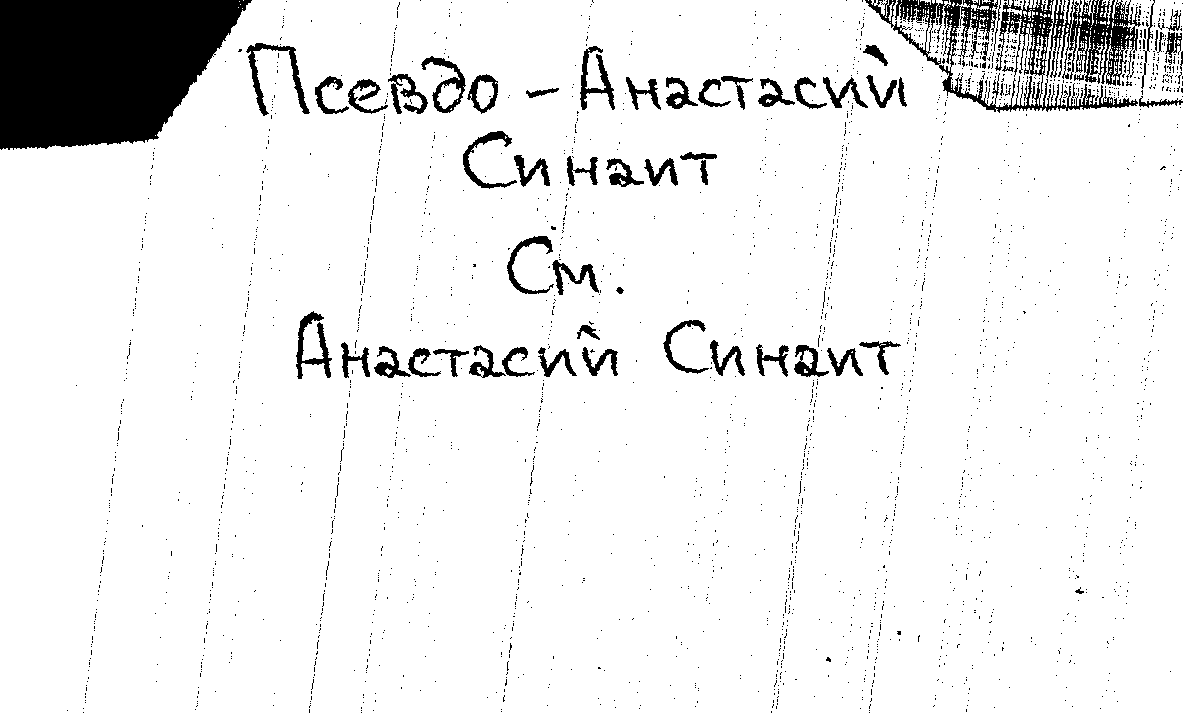 Псевдо - Анастасий
Синаит
См.
Анастасий Синаит